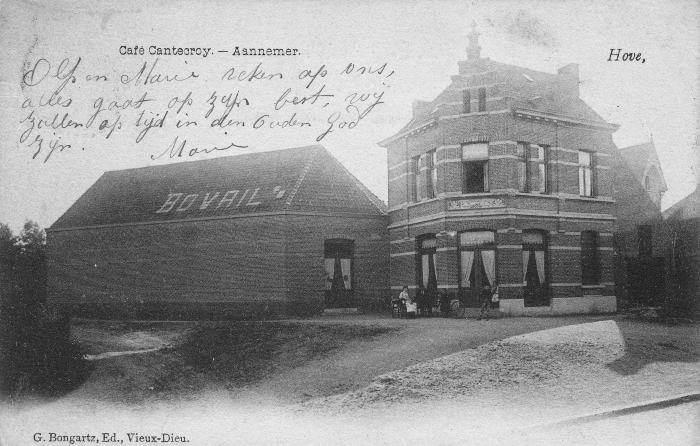 Café Cantecroy. — Aannemer.
Hove,
Olp en Marie reken op ons,
alles gaat op zyn best, wy
zullen op tyd in den Ouden God
zyn.
Marie
BOVAIL
G. Bongartz, Ed., Vieux-Dieu.